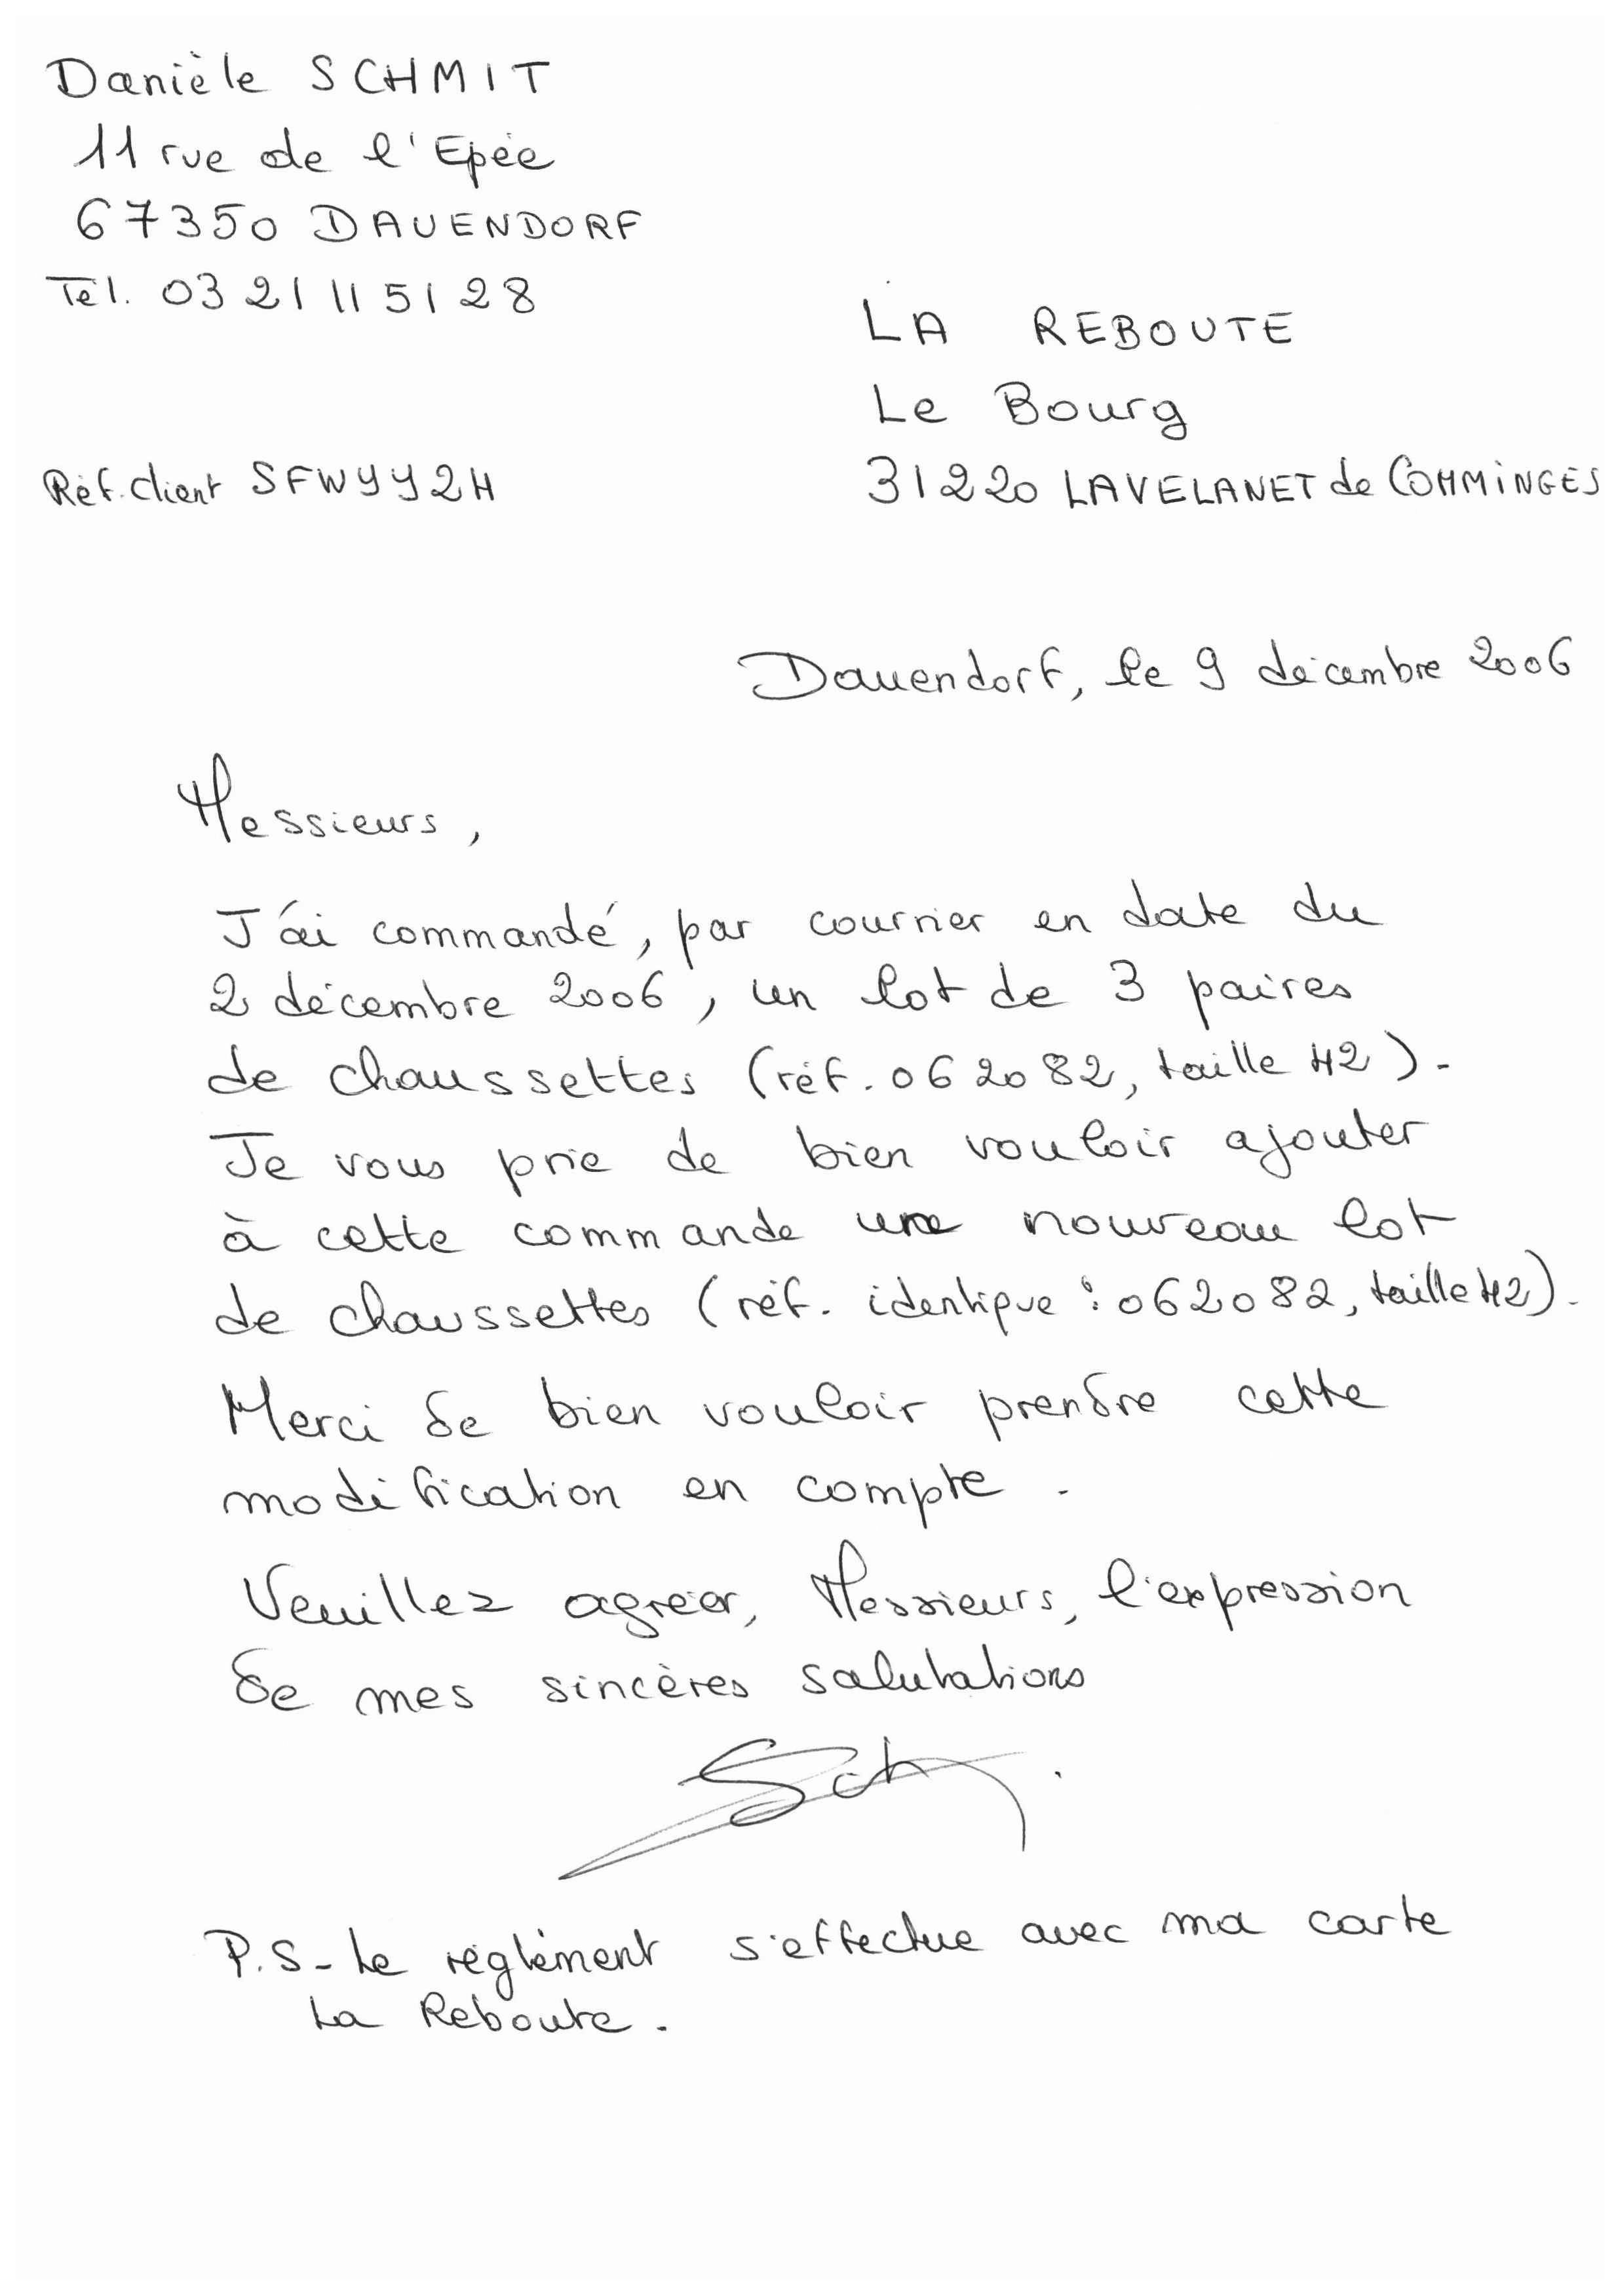 Danièle SCHMIT
11 rue de l'Epée
67350 DAUENDORF
Tél. 03 21 11 51 28
LA REBOUTE
Le Bourg
Réf. client SFWYY2H
31220 LAVELANET de COMMINGES
Dauendorf, le 9 décembre 2006
Messieurs,
J'ai commandé, par courrier en date du
2 décembre 2006, un lot de 3 paires
de chaussettes (réf. 062082, taille 42).
Je vous prie de bien vouloir ajouter
à cette commande une nouveau lot
de chaussettes (réf. identique : 062082, taille 42).
Merci de bien vouloir prendre cette
modification en compte.
Veuillez agréer, Messieurs, l'expression
de mes sincères salutations
Sch
P.S - Le règlement s'effectue avec ma carte
La Reboute.